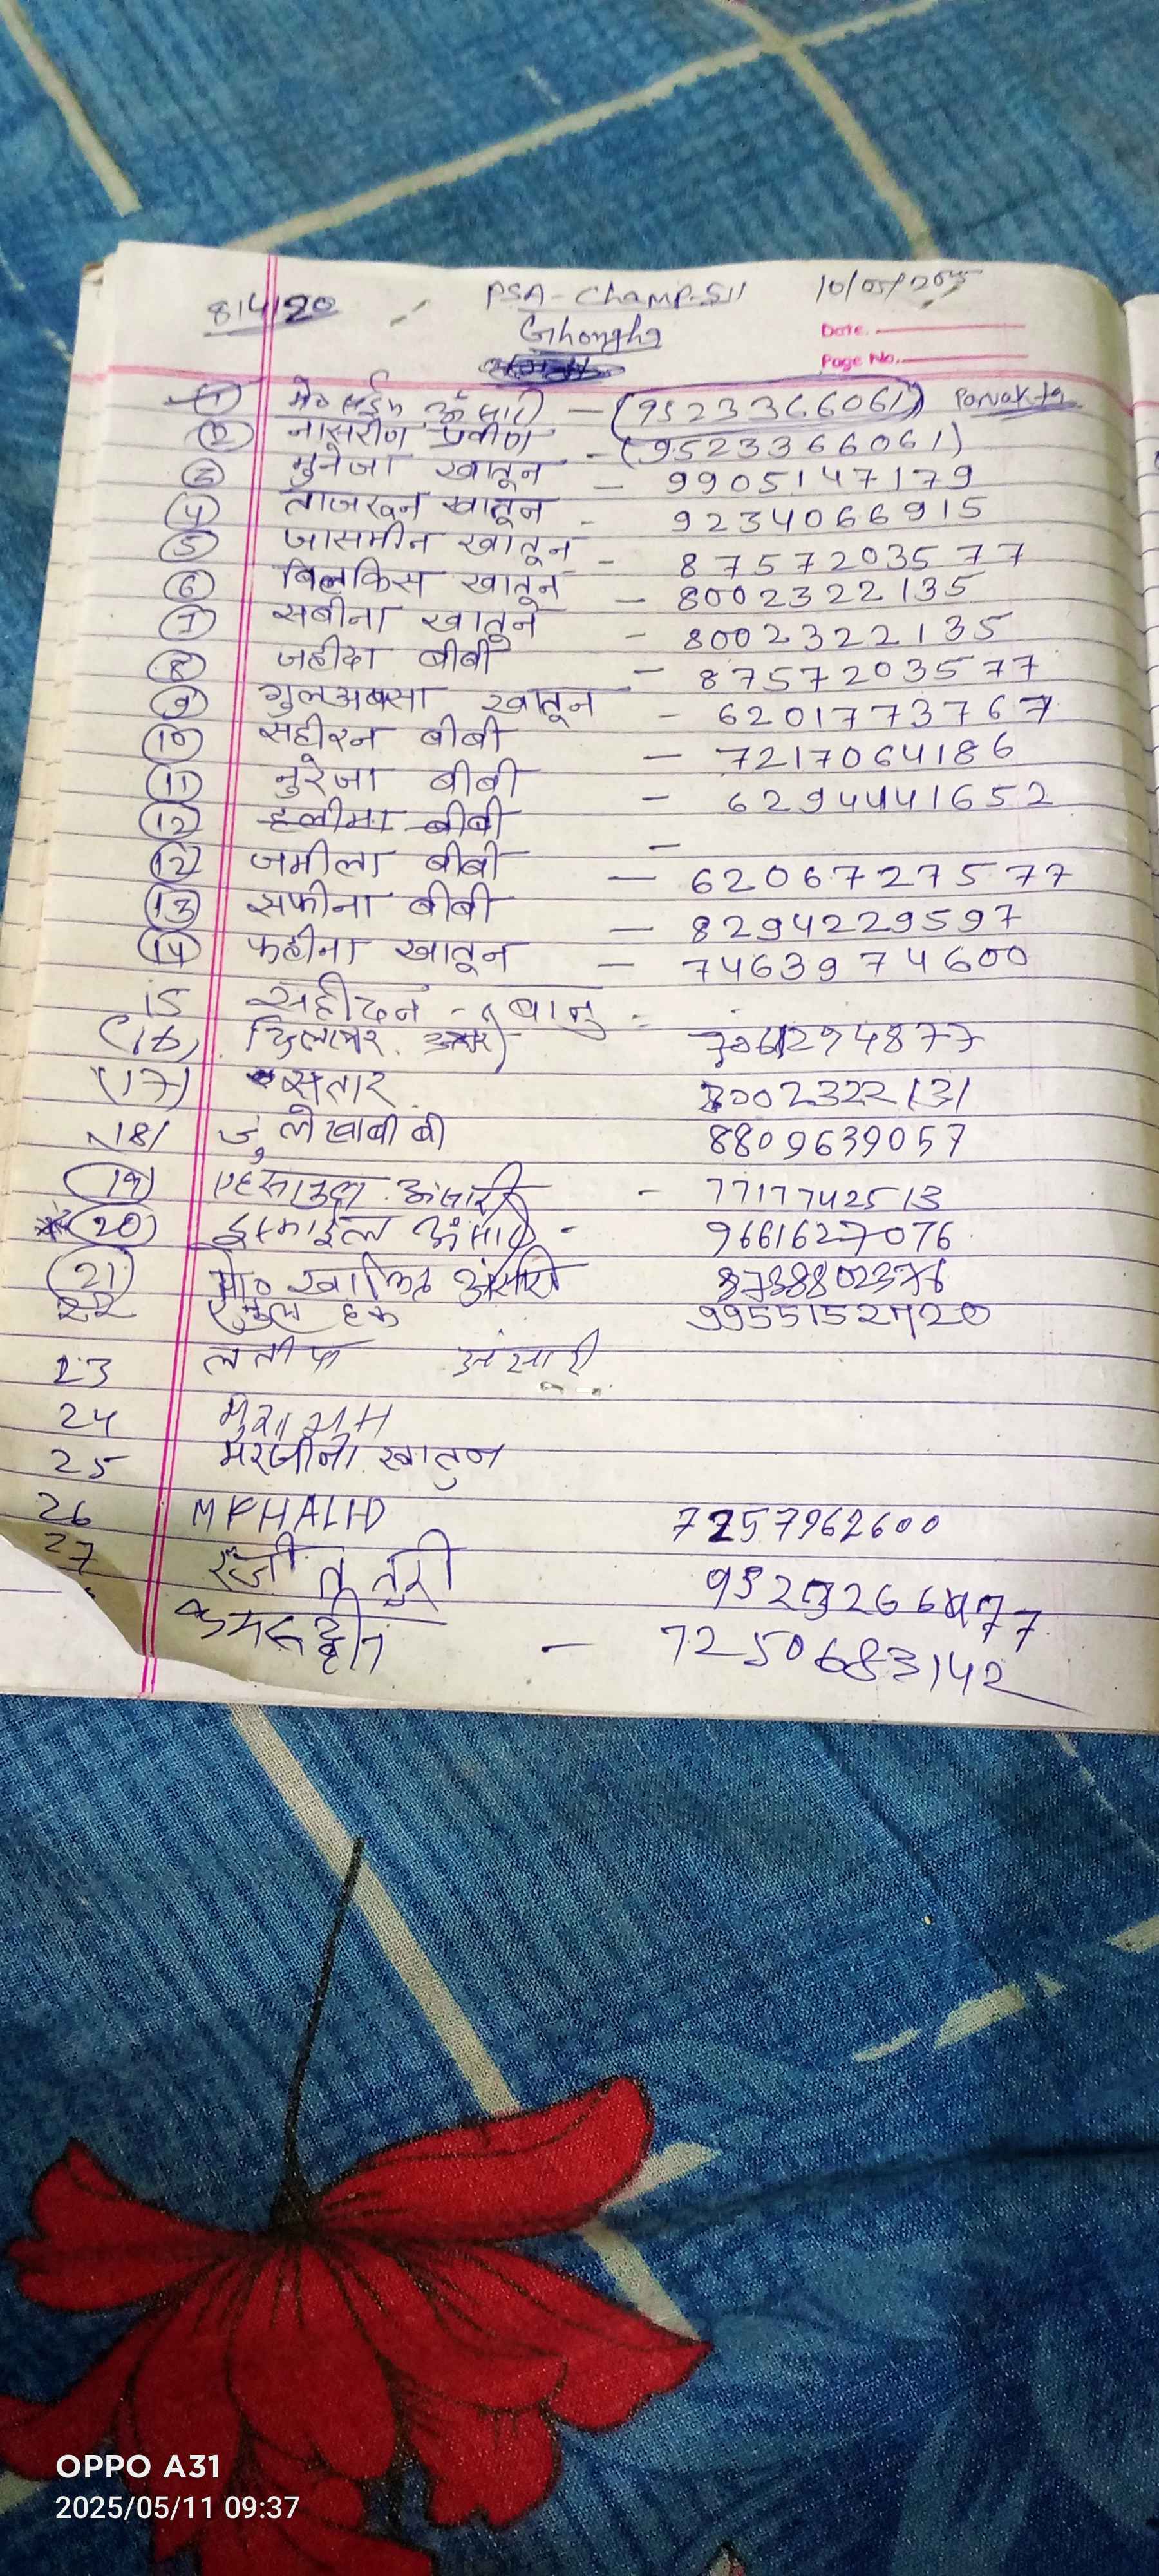 814120 PSA-Champ-SII 10/05/2025
Ghongha
Date.
Page No.
1 मो० सईद अंसारी - (9523366061) Parvakta
2 नासरीण प्रवीण - (9523366061)
3 मुनेजा खातून - 9905147179
4 ताजरुन खातून - 9234066915
5 जासमीन खातून - 8757203577
6 बिलकिस खातून - 8002322135
7 सबीना खातून - 8002322135
8 जहीदा बीबी - 8757203577
9 गुलअबसा खातून - 6201773767
10 सहीरन बीबी - 7217064186
11 नुरेजा बीबी - 6294441652
12 हलीमा बीबी -
12 जमीला बीबी - 6206727577
13 सफीना बीबी - 8294229597
14 फहीना खातून - 7463974600
15 सहीदन - बानु -
(16) 7061294877
(17) सतार 8002322131
18/ जुलेखाबीबी 8809639057
19 अंसारी - 7717742513
20 इस्माईल अंसारी - 9661627076
21 मो० खालिद अंसारी
22 हक
23 लतीफ अंसारी
24
25 मरजीना खातुन
26 MKHALID 7257962600
27 रंजीत तुरी
कमरुद्दीन - 7250683142
OPPO A31
2025/05/11 09:37